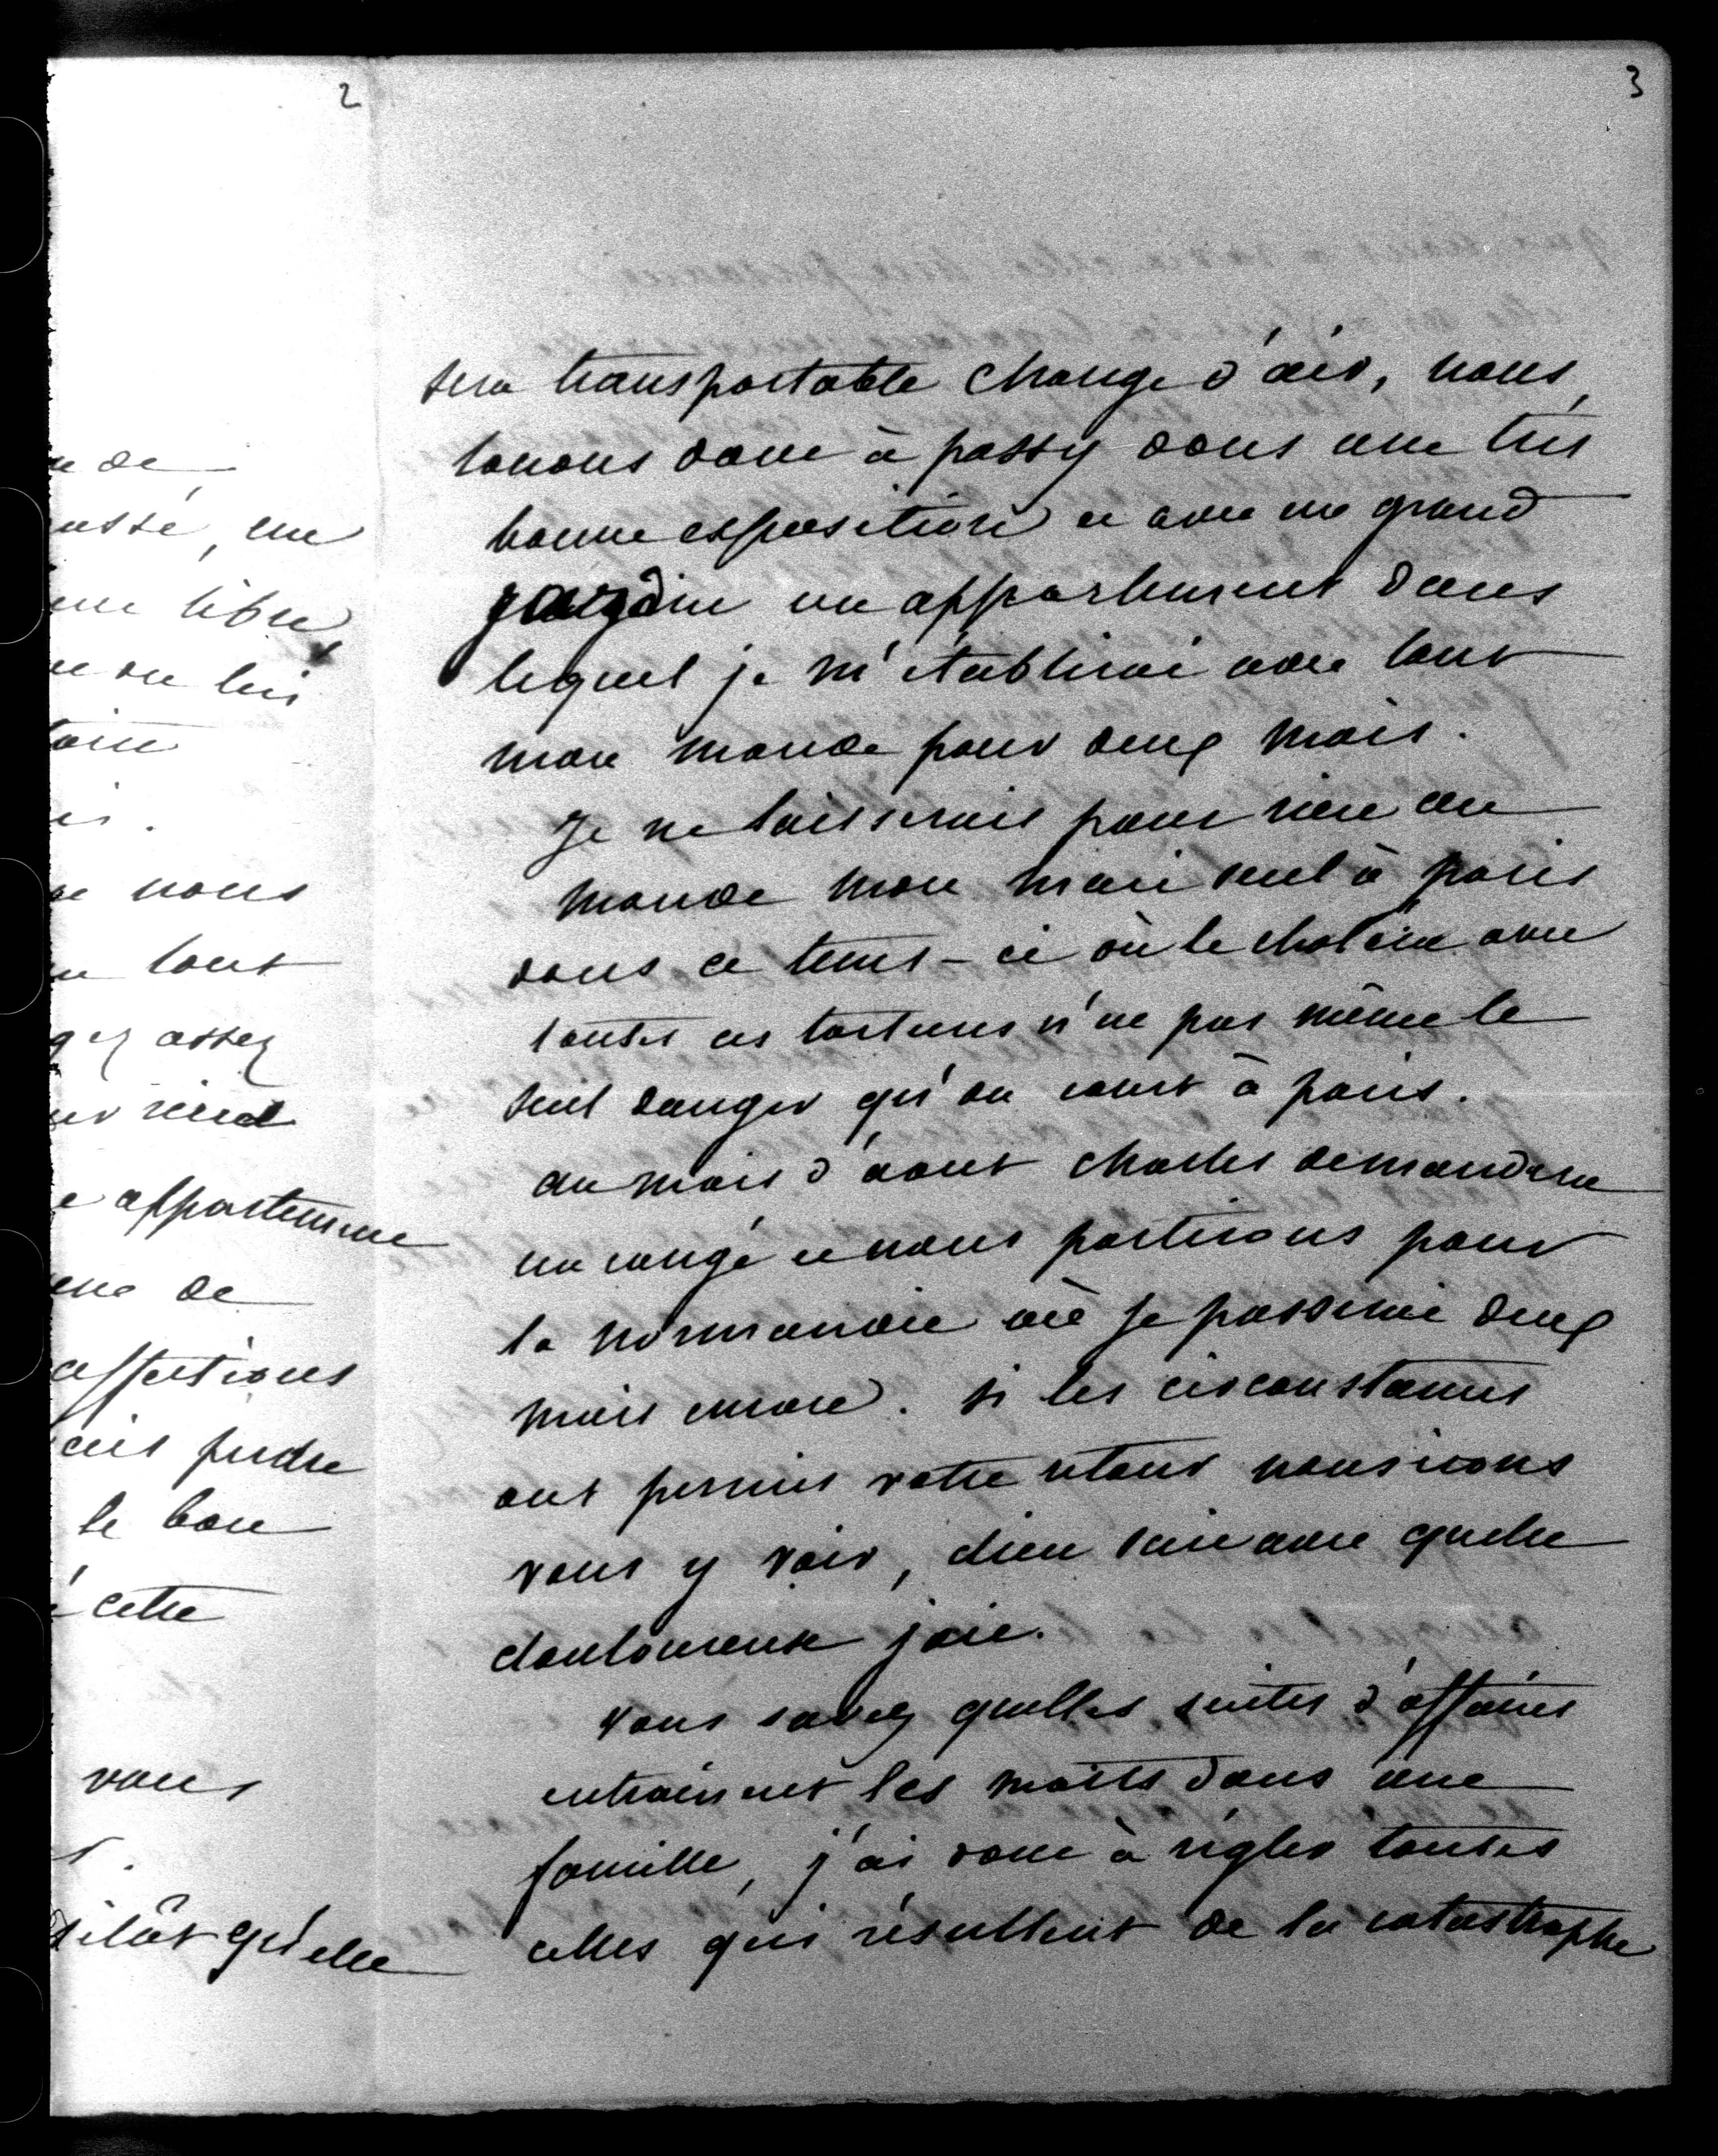 2
de
assé, une
libre
on lui
nous
tout
gez assez
rend
appartement
de
affections
perdre
le bon
cette
vous
sitôt qu'elle
3
sera transportable change d'air, nous
louons donc à passy dans une très
bonne exposition et avec un grand
jardin un appartement dans
lequel je m'établirai avec tout
mon monde pour deux mois.
Je ne laisserais pour rien au
monde mon mari seul à paris
dans ce tems-ci où le choléra avec
toutes ces tortures n'est pas même le
seul danger qu'on court à paris.
au mois d'aout charles demandera
un congé et nous partirons pour
la normandie où je passerai deux
mois encore. si les circonstances
ont permis votre retour nous irons
vous y voir, dieu sait avec quelle
douloureuse joie.
Vous savez quelles suites d'affaires
entrainent les morts dans une
famille, j'ai donc à régler toutes
celles qui résultent de la catastrophe